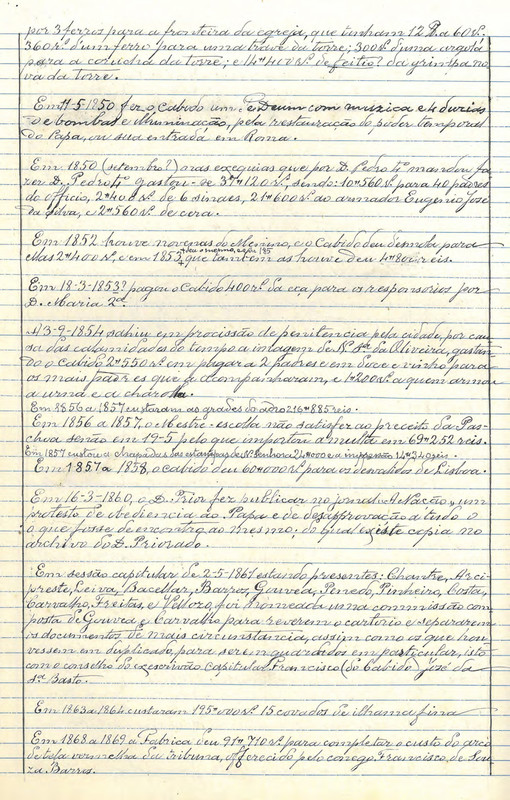 por 3 ferros para a fronteira da egreja, que tinham 12 lb a 60 rs.
360 rs. d'um ferro para uma trave da torre; 300 rs. d'uma argola
para a corucha da torre; e 14#400 rs. de feitio? da grimpa no-
va da torre.
Em 11-5-1850 fez o Cabido um Te Deum com muzica e 4 duzias
de bombas e illuminação, pela restauração do poder temporal
do Papa, ou sua entrada em Roma.
Em 1850 (setembro?) nas exequias que por D. Pedro 4º mandou fa-
zer D. Pedro 4º gastou-de 37#120 rs., sendo: 10#560 rs. para 40 padres
do officio, 2#400 rs. de 6 sinaes, 21#600 rs. ao armador Eugenio José
da Silva, e 2#560 rs. de cera.
Em 1852 houve novenas do Menino, e o Cabido deu d'esmola para
ellas 2#400 rs., e em 1853, que tambem as houve deu 4#800 reis.
Em 18-3-1853? pagou o Cabido 400 rs. da eça para os responsorios por
D. Maria 2ª.
A 3-9-1854 sahiu em procissão de penitencia pela cidade, por cau-
sa das calamidades do tempo a imagem de N. Sra. da Oliveira, gastan-
do o Cabido 2#550 rs. em pagar a 2 padres em doce e vinho para
os mais padres que a acompanharam, e 1#200 rs. a quem armou
a urna e a charola.
Em 1856 a 1857 custaram as grades do adro 216#885 reis.
Em 1856 a 1857, o Mestre-escola não satisfez ao preceito da Pas-
choa senão em 19-5, pelo que importou a multa em 69#252 reis.
Em 1857 custou a chapa das estampas de Nª Senhora 24#000 e a impressão 14#340 reis.
Em 1857 a 1858, o cabido deu 60#000 rs. para os desvalidos de Lisboa.
Em 16-3-1860, o D. Prior fez publicar no jornal A Nação, um
protesto de obediencia ao Papa e de desapprovação a tudo o
o que fosse de encontro ao mesmo; do qual existe copia no
archivo do D. Priorado.
Em sessão capitular de 2-5-1867 estando presentes: Chantre, Arci-
preste, Leiva, Bacellar, Barros, Gouvêa, Penedo, Pinheiro, Costa,
Carvalho, Freitas, e Velloso, foi nomeada uma commissão com-
posta de Gouvea e Carvalho para reverem o cartorio e separarem
os documentos de mais circunstancia, assim como os que hou-
vessem em duplicado, para serem guardados em particular, isto
com o conselho do escrivão Capitular, Francisco (do Cabido) José da
Sª Basto.
Em 1863 a 1864 custaram 195#000 rs. 15 covados de ilhama fina
Em 1868 a 1869 a Fabrica deu 91#710 rs. para completar o custo do arco
de tela vermelha da tribuna, offerecido pelo conego Francisco de Sou-
za Barros.